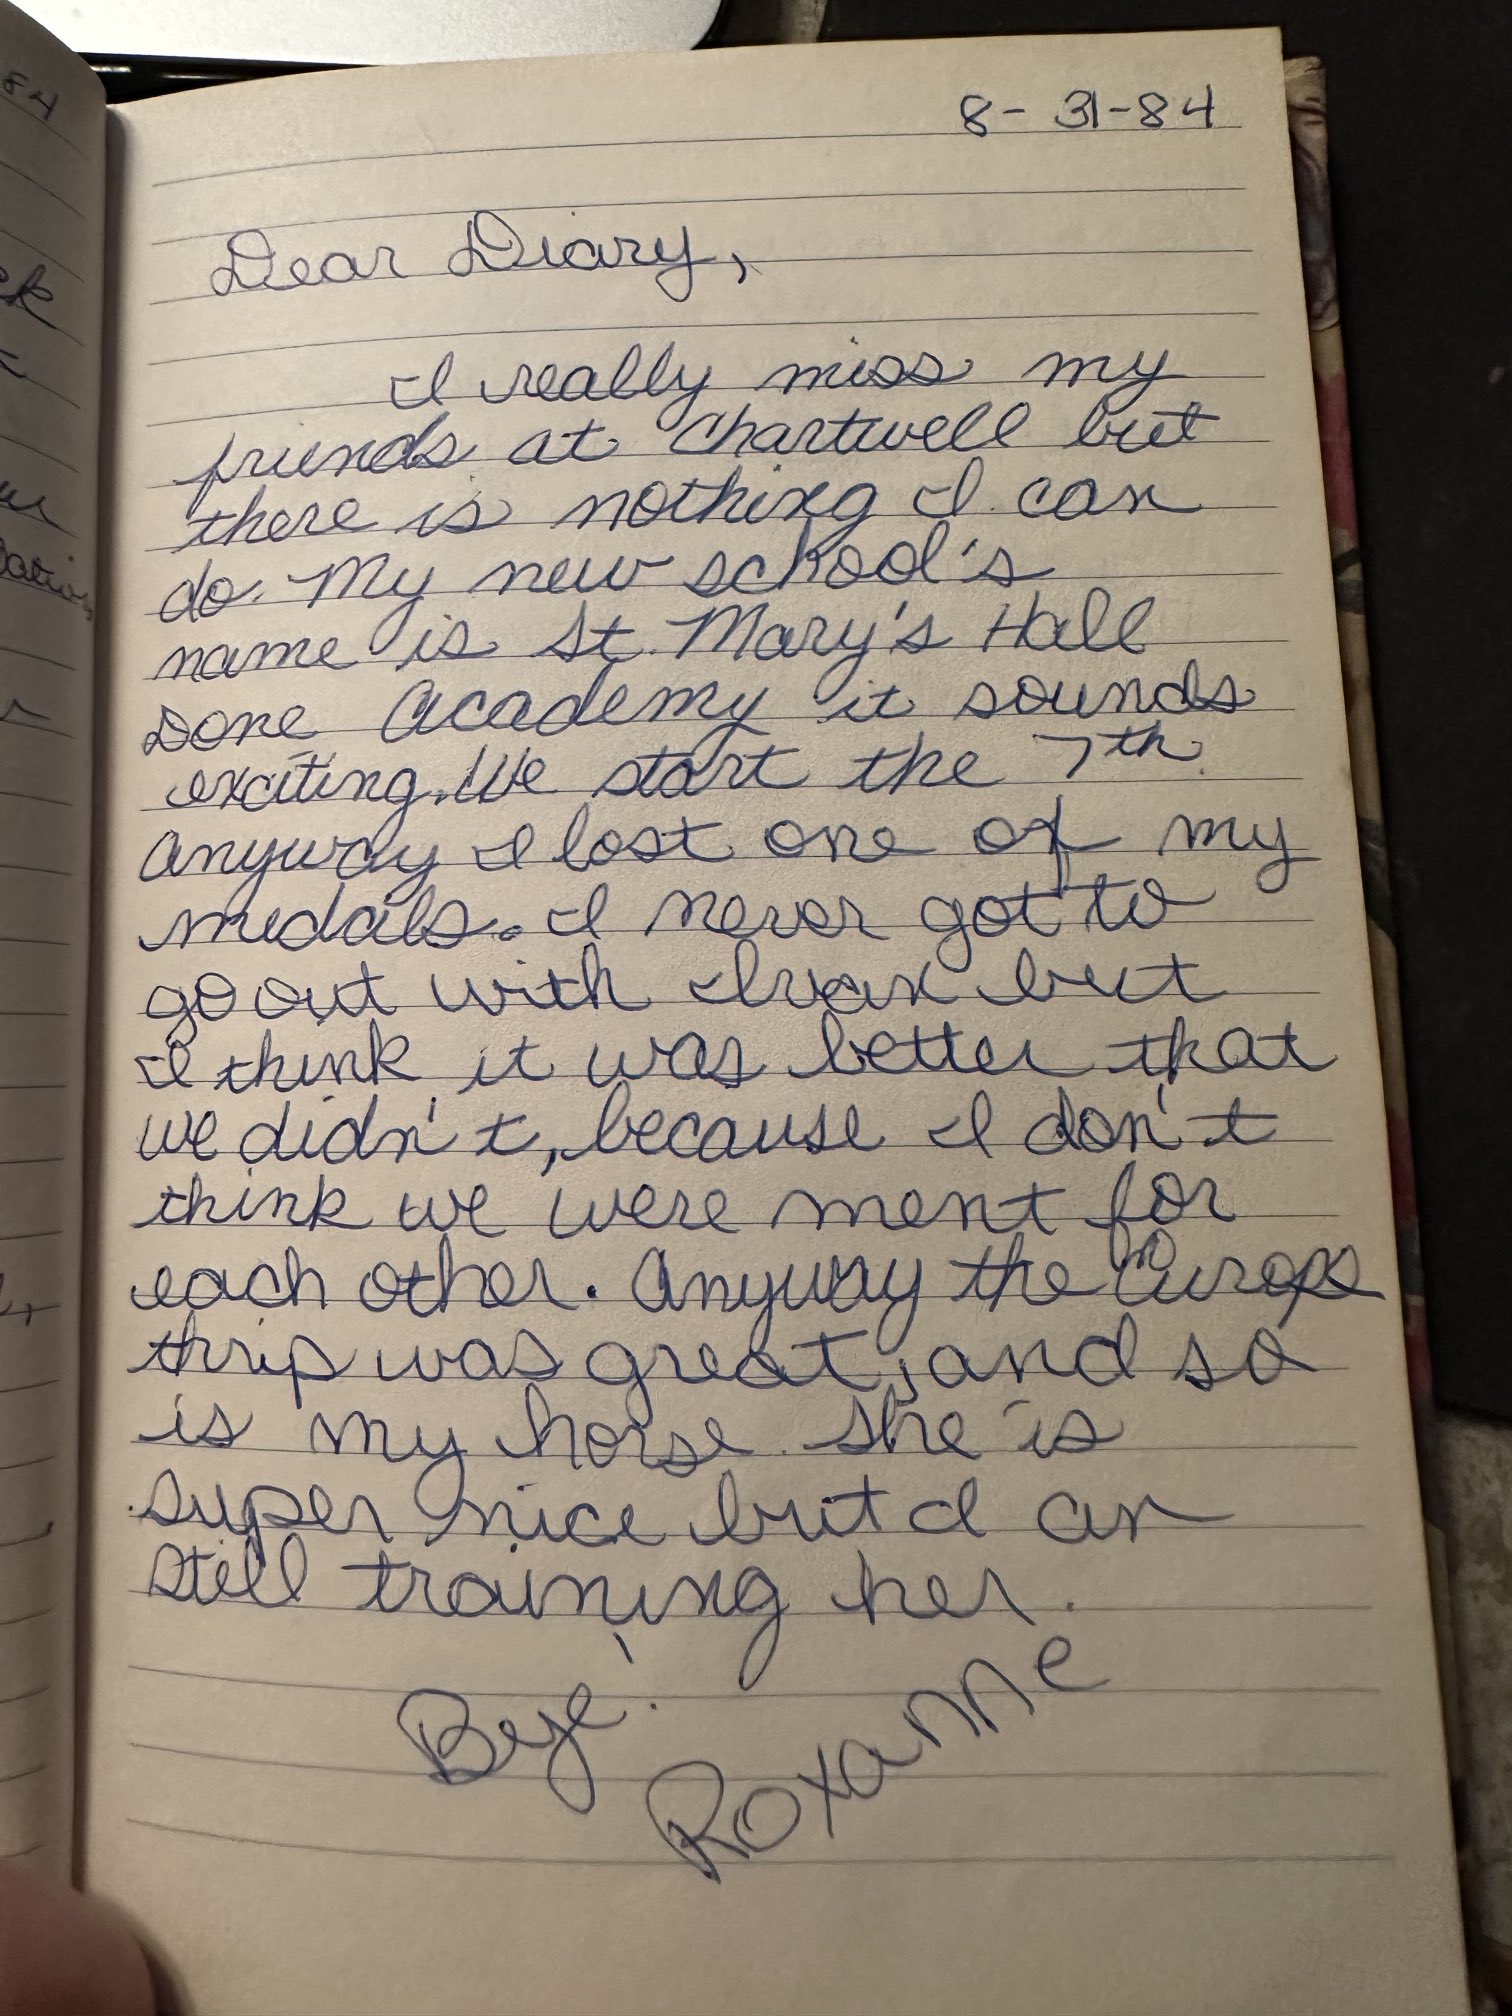 8-31-84
Dear Diary,
I really miss my
friends at Chartwell but
there is nothing I can
do. My new school's
name is St. Mary's Hall
Done Academy it sounds
exciting. We start the 7th.
Anyway I lost one of my
medals. I never got to
go out with Ivan but
I think it was better that
we didn't, because I don't
think we were ment for
each other. Anyway the Europe
thrip was great, and so
is my horse. She is
super nice but I am
still training her.
Bye!
Roxanne